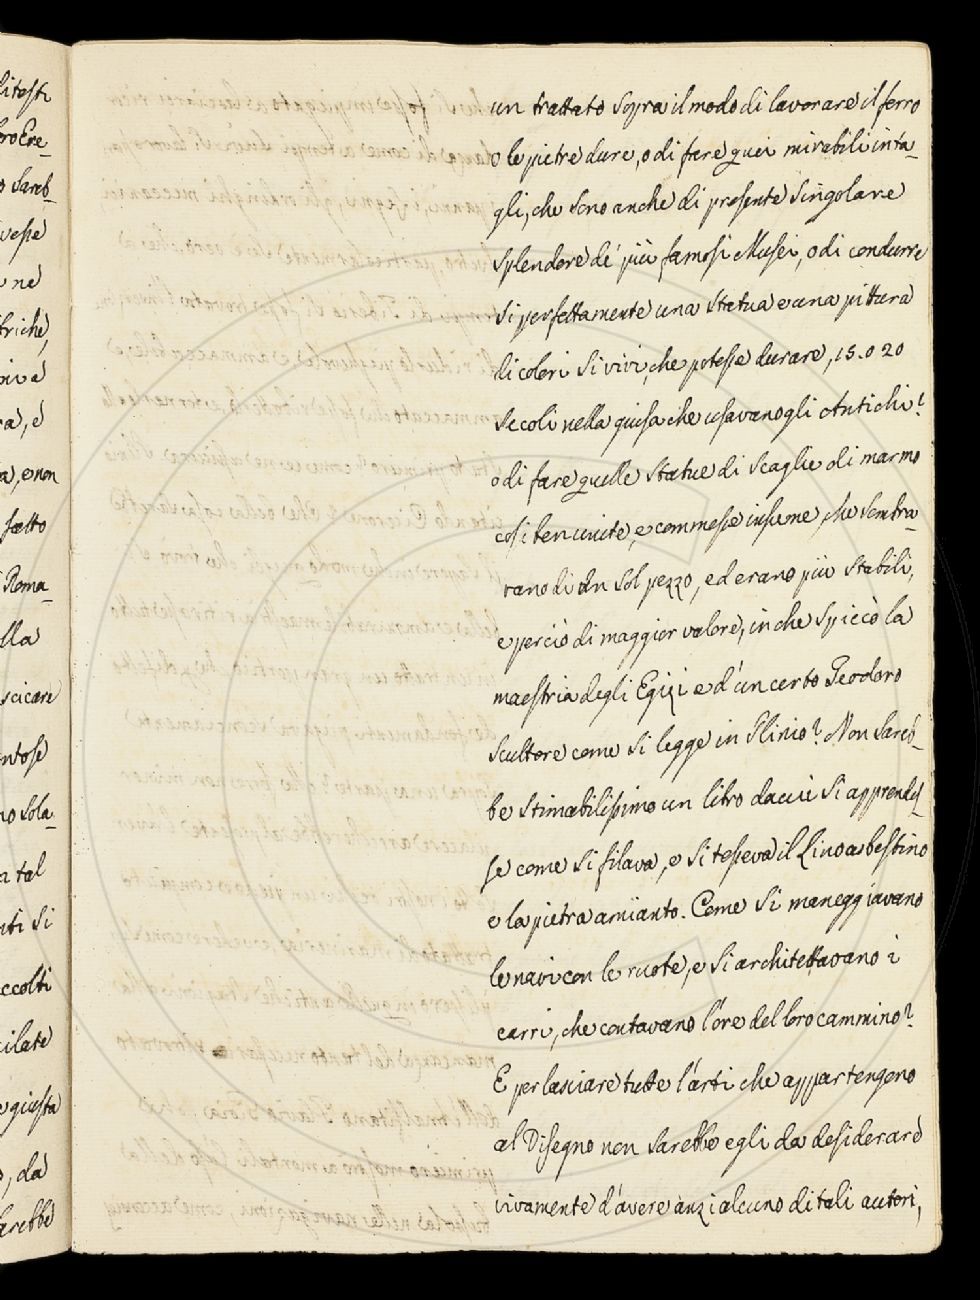 litesti
oroEre_
o Sareb_
vesse
ne
triche,
viva
ra, e
a, e non
fatto
Roma_
lla
scicare
ntose
no sola_
a tal
nti Si
ccolti
cilate
e giusta
o, da
sarebbe
un trattato sopra il modo di lavorare il ferro
o le pietre dure, o di fare quei mirabili inta_
gli, che sono anche di presente Singolare
splendore dé più famosi Musei, o di condurre
Si perfettamente una Statua e una pittura
di colori Si vivi, che potesse durare, 15. o 20
Secoli nella guisa che usavano gli Antichi?
o di fare quelle Statue di Scaglie di marmo
così ben unite, e commesse insieme, che sembra_
vano di un Sol pezzo, ed erano più Stabili,
e perciò di maggior valore, in che Spiccò la
maestria degli Egizi e d'un certo Teodoro
Scultore come Si legge in Plinio? Non Sareb_
be Stimabilissimo un libro da cui Si apprendes_
se come Si filava, e Si tesseva il Lino asbestino
e la pietra amianto. Come Si maneggiavano
le navi con le ruote, e Si architettavano i
carri, che contavano l'ore del loro cammino?
E per lasciare tutte l'arti che appartengono
al Disegno non Sarebbe egli da desiderare
vivamente d'avere anzi alcuno di tali autori,